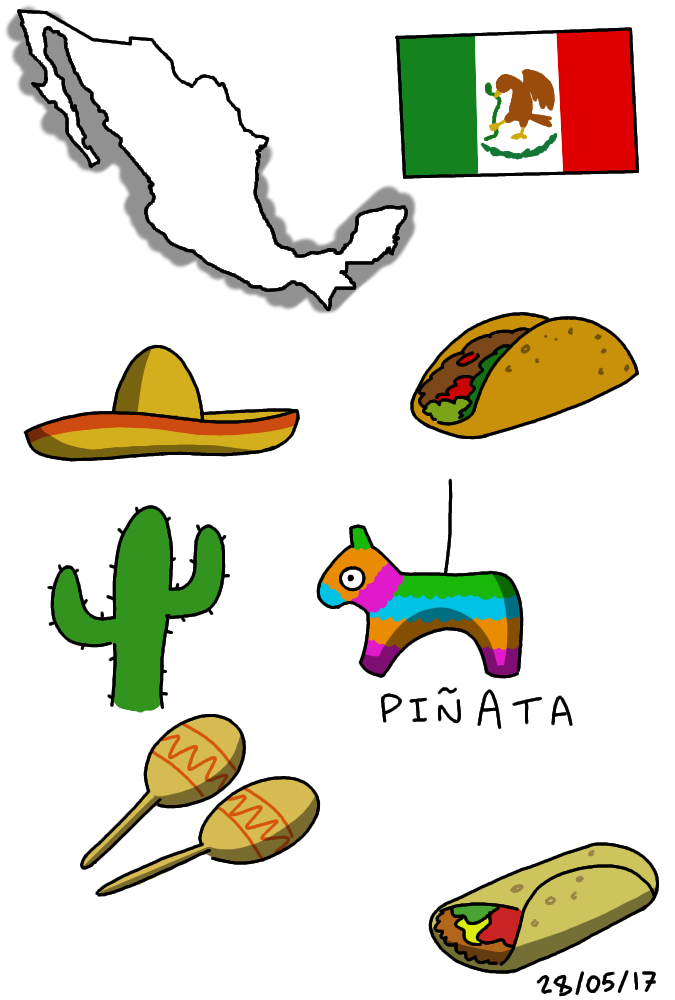 PIÑATA
28/05/17